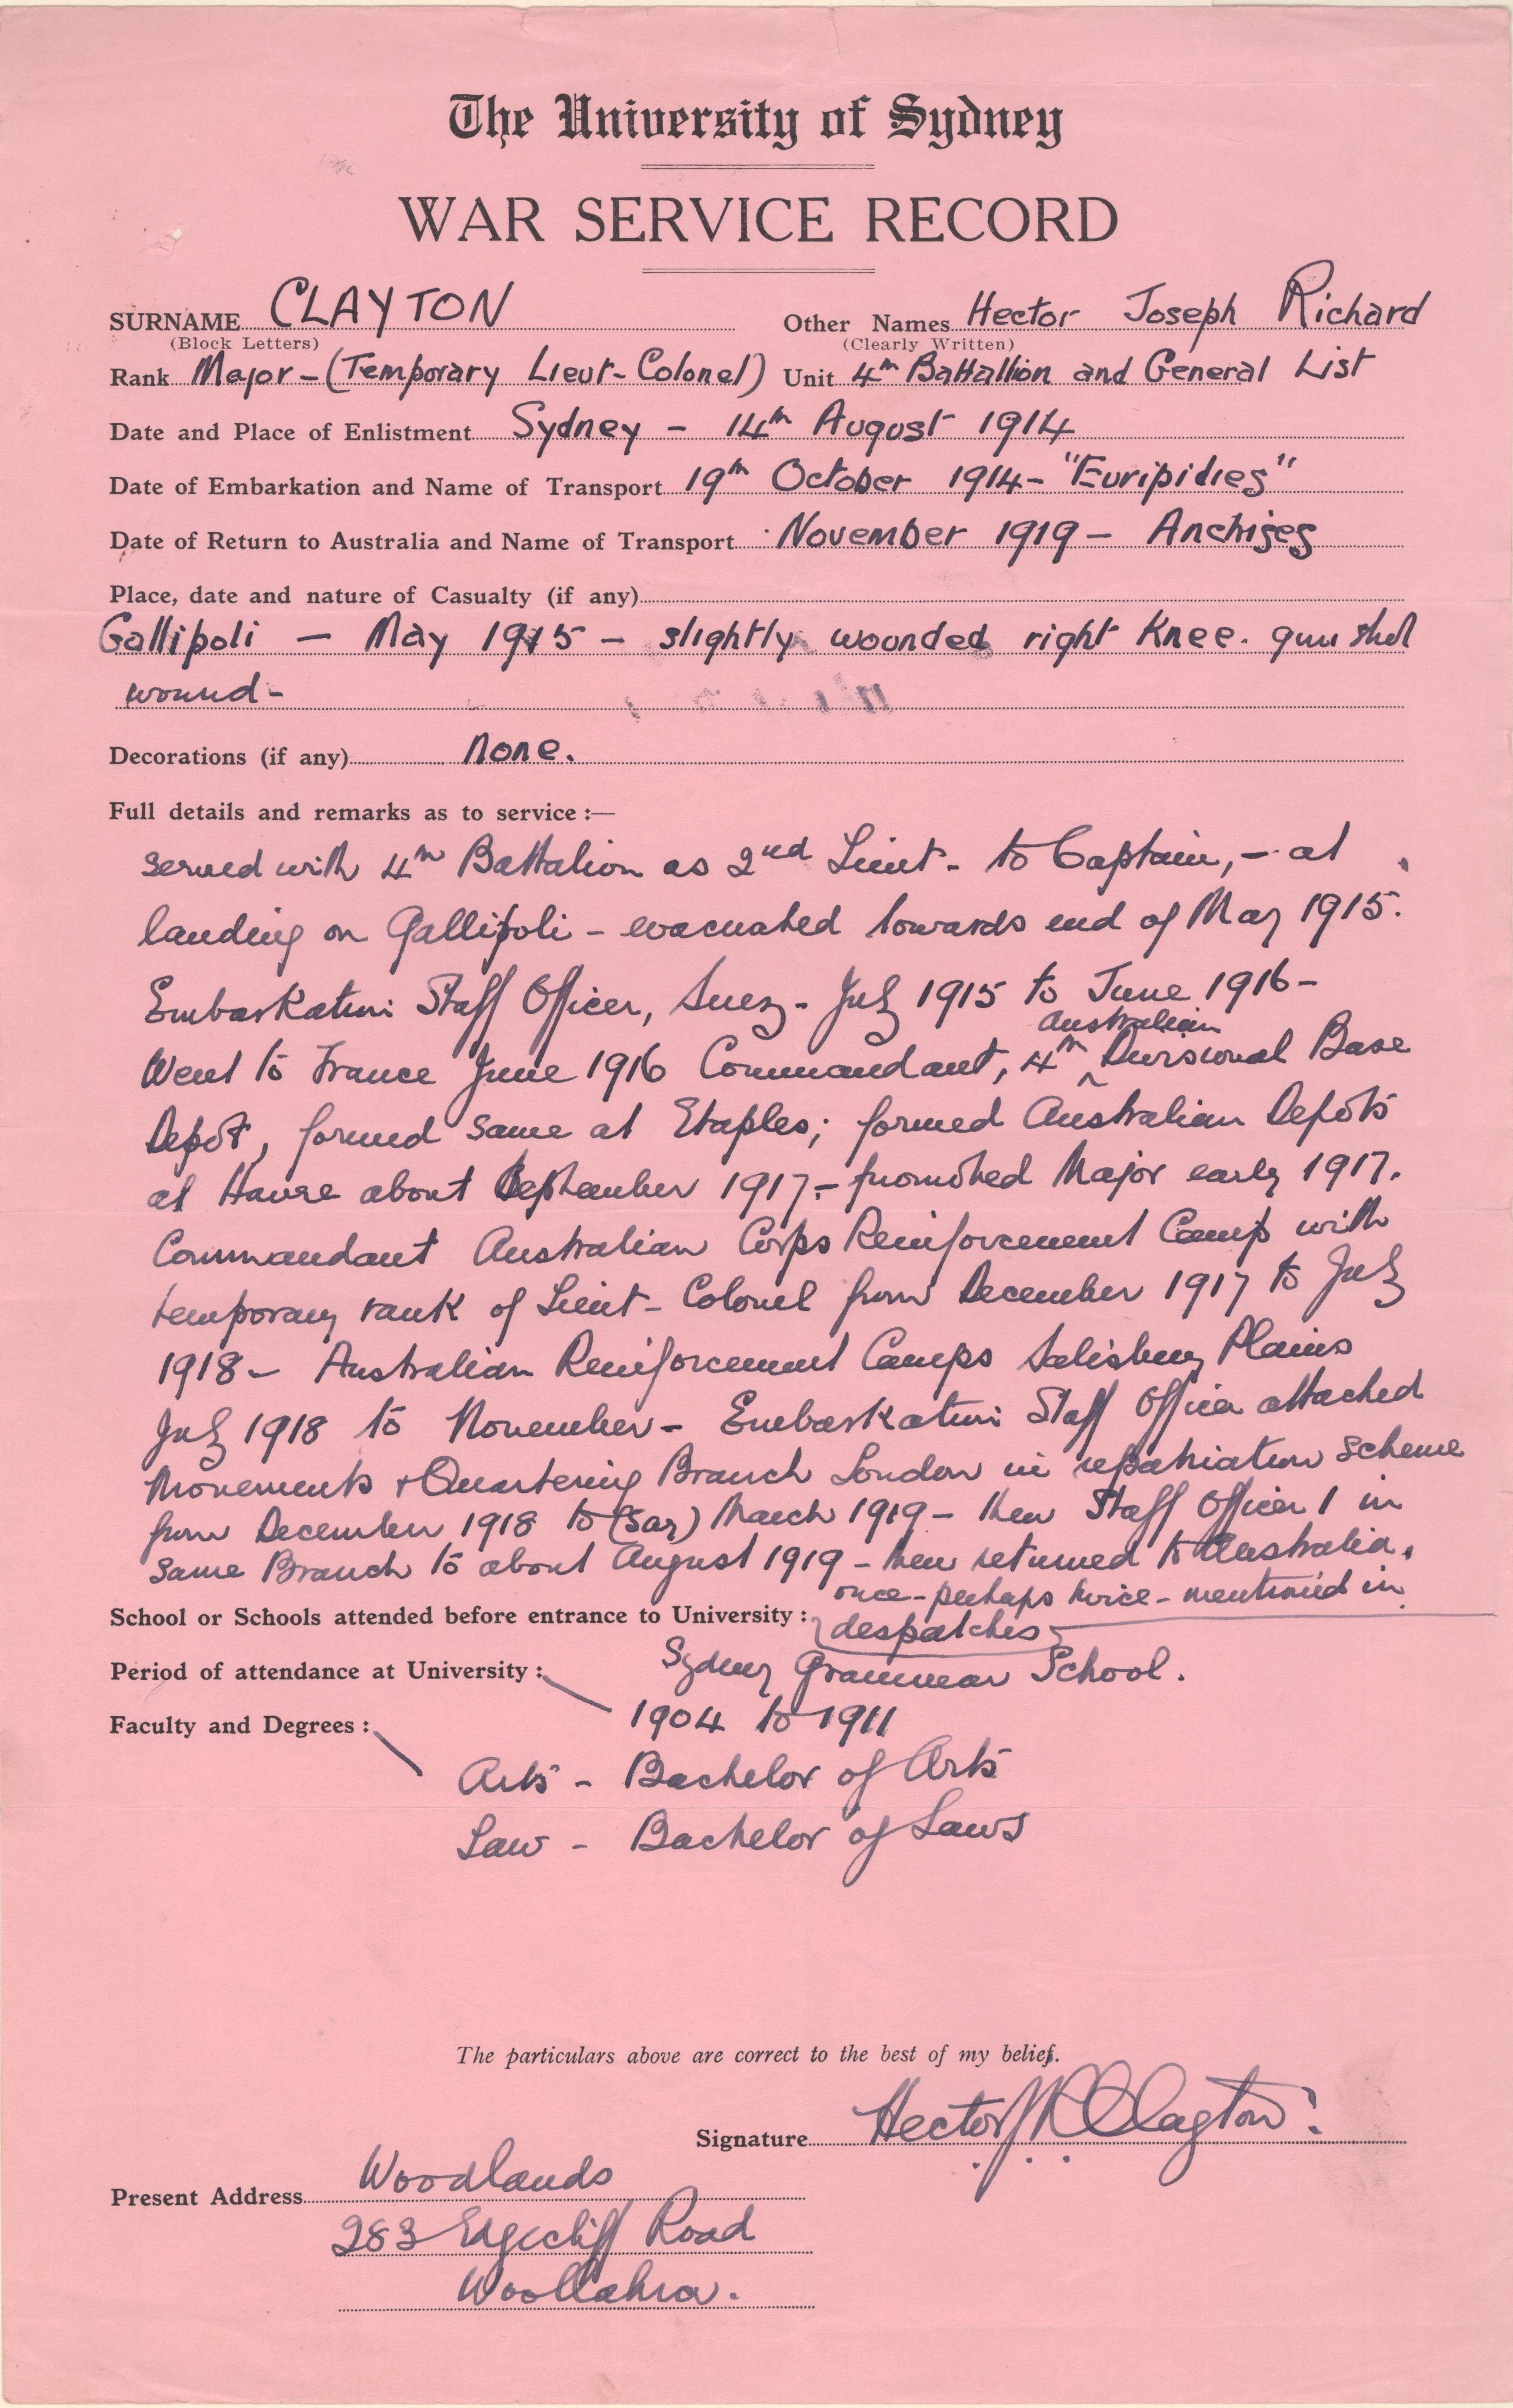 The University of Sydney
WAR SERVICE RECORD
SURNAME CLAYTON Other Names Hector Joseph Richard
(Block Letters) (Clearly Written)
Rank Major - (Temporary Lieut-Colonel) Unit 4th Battallion and General List
Date and Place of Enlistment Sydney - 14th August 1914
Date of Embarkation and Name of Transport 19th October 1914 - "Euripidies"
Date of Return to Australia and Name of Transport November 1919 - Anchises
Place, date and nature of Casualty (if any)
Gallipoli - May 1915 - slightly wounded right knee. gun shot
wound -
Decorations (if any) None.
Full details and remarks as to service :—
served with 4th Battalion as 2nd Lieut - to Captain, - at
landing on Gallipoli - evacuated towards end of May 1915.
Embarkation Staff Officer, Suez - July 1915 to June 1916 -
Went to France June 1916 Commandant, 4th Australian Divisional Base
Depot, formed same at Etaples; formed Australian Depots
at Havre about September 1917 - promoted Major early 1917.
Commandant Australian Corps Reinforcement Camp with
temporary rank of Lieut - Colonel from December 1917 to July
1918 - Australian Reinforcement Camps Salisbury Plains
July 1918 to November - Embarkation Staff Officer attached
Movements + Quartering Branch London in repatriation scheme
from December 1918 to (say) March 1919 - then Staff Officer 1 in
same Branch to about August 1919 - then returned to Australia.
once - perhaps twice - mentioned in
School or Schools attended before entrance to University : despatches
Sydney Grammar School.
Period of attendance at University :
1904 to 1911
Faculty and Degrees :
Arts - Bachelor of Arts
Law - Bachelor of Laws
The particulars above are correct to the best of my belief.
Signature Hector J R Clayton
Present Address Woodlands
283 Edgecliff Road
Woollahra.